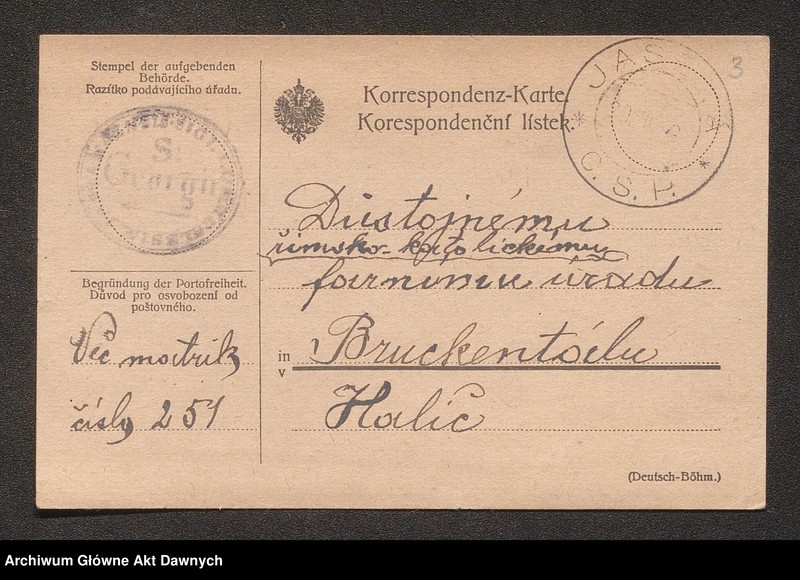 Stempel der aufgebenden
Behörde.
Razítko podávajícího úřadu.
S.
Georgii
Korrespondenz-Karte.
Korespondenční lístek.
C. S. P.
3
Důstojnému
římsko-katolickému
farnímu úřadu
Begründung der Portofreiheit.
Důvod pro osvobození od
poštovného.
Věc matrik
čísly 251
in
v
Bruckentálu
Halič
(Deutsch-Böhm.)
Archiwum Główne Akt Dawnych